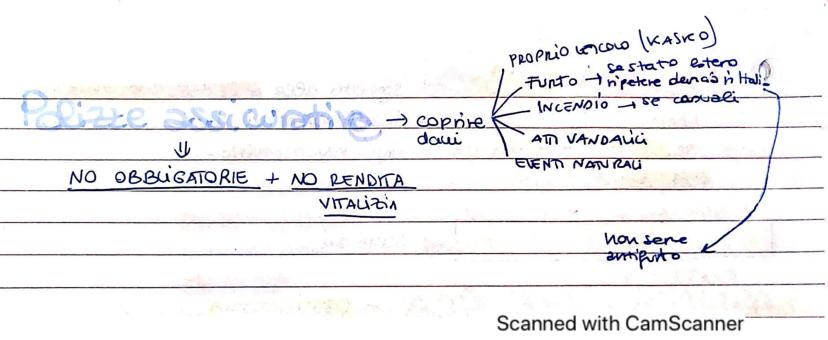 PROPRIO VEICOLO (KASKO)
se stato estero
FURTO → ripetere denuncia in Italia
INCENDIO → se casuali
Polizze assicurative → coprire
danni
ATTI VANDALICI
EVENTI NATURALI
⇓
NO OBBLIGATORIE + NO RENDITA
VITALIZIA
non serve
antifurto
Scanned with CamScanner